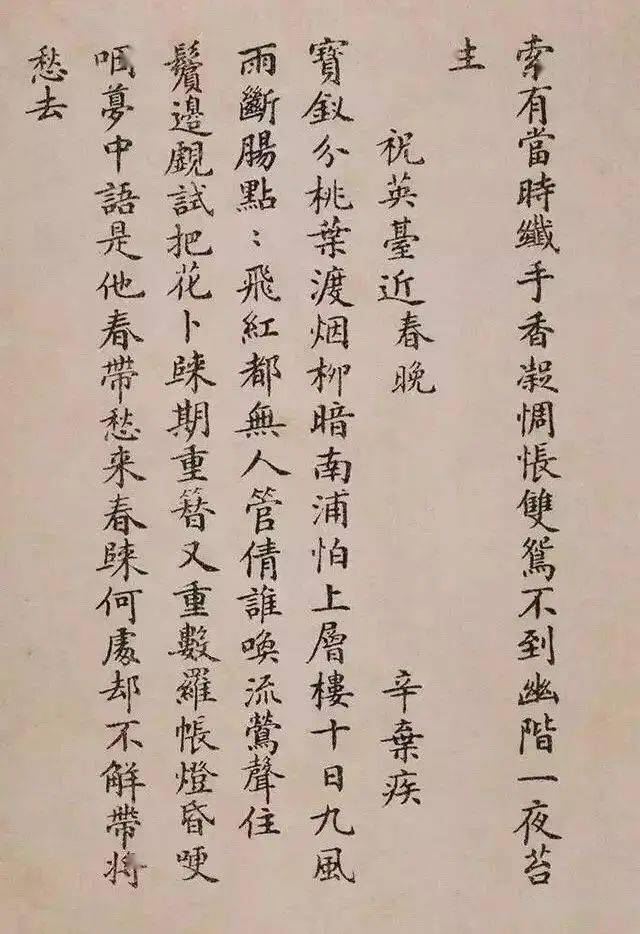 索有當時纖手香凝惆悵雙鴛不到幽階一夜苔
生
祝英臺近 春晚 辛棄疾
寶釵分桃葉渡烟柳暗南浦怕上層樓十日九風
雨斷腸點〻飛紅都無人管倩誰喚流鶯聲住
鬢邊覷試把花卜歸期重簪又重數羅帳燈昏哽
咽夢中語是他春帶愁來春歸何處却不解帶將
愁去